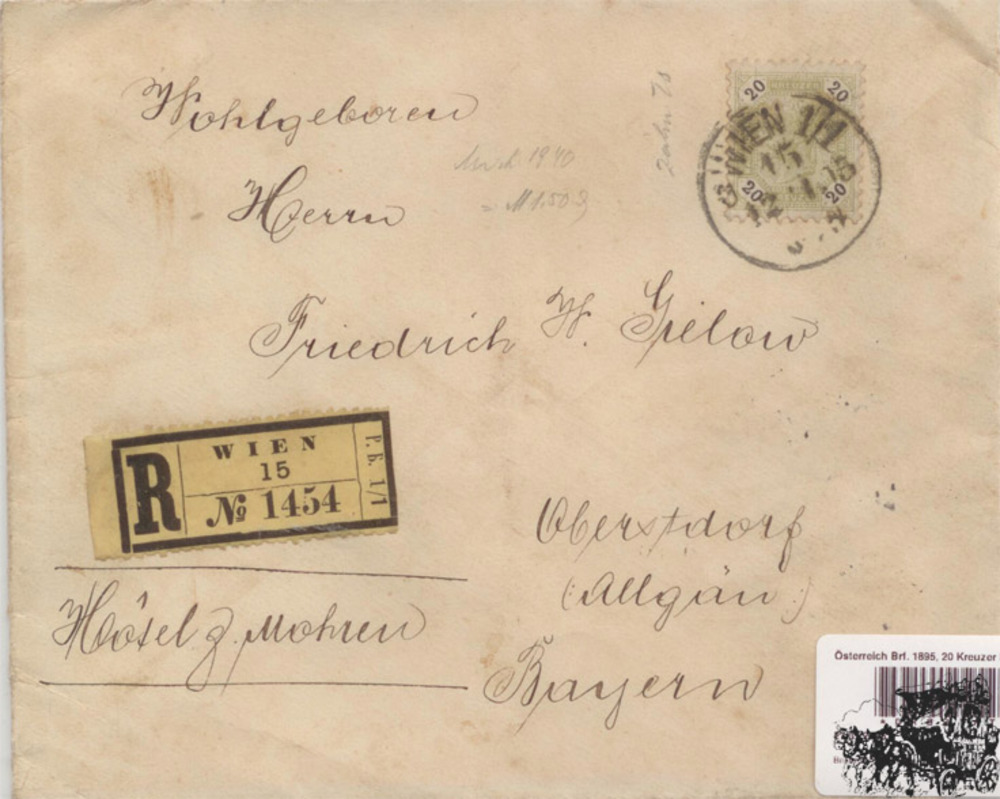 Wohlgeboren
Herrn
Friedrich W. Gielow
Oberstdorf
(Allgäu)
Bayern
Hôtel z. Mohren
Mich 1940
= M 1.50
20 KREUZER 20
20 20
WIEN 1/1
15
R
WIEN
15
№ 1454
P. 1/1
Österreich Brf. 1895, 20 Kreuzer